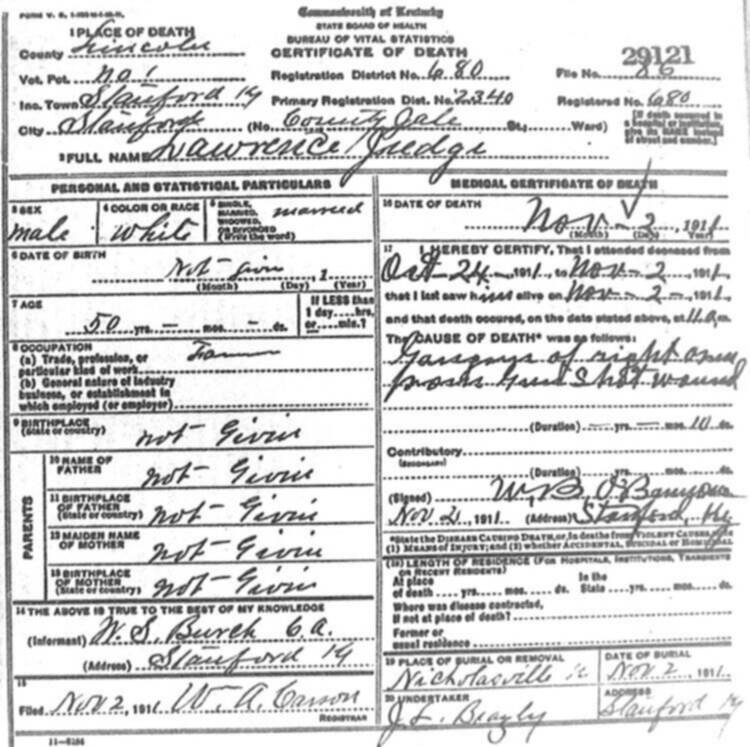 Commonwealth of Kentucky
STATE BOARD OF HEALTH
BUREAU OF VITAL STATISTICS
CERTIFICATE OF DEATH
1 PLACE OF DEATH
County Lincoln
Vot. Pct. No 1
Inc. Town Stanford Ky
City Stanford (No. County Jale St., Ward)
Registration District No. 680
Primary Registration Dist. No. 2340
29121
File No. 86
Registered No. 680
[If death occurred in a hospital or institution, give its NAME instead of street and number.]
2 FULL NAME Lawrence Judge
PERSONAL AND STATISTICAL PARTICULARS
3 SEX
male
4 COLOR OR RACE
White
5 SINGLE, MARRIED, WIDOWED, OR DIVORCED (Write the word)
married
6 DATE OF BIRTH
Not Givin, 1
(Month) (Day) (Year)
7 AGE
50 yrs. — mos. — ds.
If LESS than 1 day....hrs. or....min.?
8 OCCUPATION
(a) Trade, profession, or
particular kind of work
(b) General nature of industry
business, or establishment in
which employed (or employer)
9 BIRTHPLACE
(State or country) not Givin
PARENTS
10 NAME OF
FATHER not Givin
11 BIRTHPLACE
OF FATHER
(State or country) not Givin
12 MAIDEN NAME
OF MOTHER not Givin
13 BIRTHPLACE
OF MOTHER
(State or country) not Givin
14 THE ABOVE IS TRUE TO THE BEST OF MY KNOWLEDGE
(Informant) W. S. Burch C.A.
(Address) Stanford Ky
15
Filed Nov 2, 1911 W. A. Carson
REGISTRAR
11-6184
MEDICAL CERTIFICATE OF DEATH
16 DATE OF DEATH
Nov - 2, 1911
(Month) (Day) (Year)
17 I HEREBY CERTIFY, That I attended deceased from
Oct 24 - 1911 to Nov - 2 - 1911
that I last saw him alive on Nov - 2 - 1911
and that death occured, on the date stated above, at 11 a m.
The CAUSE OF DEATH* was as follows:
of right
from Gun Shot wound
(Duration) — yrs. — mos. 10 ds.
Contributory
(SECONDARY)
(Duration) yrs. mos. ds.
(Signed) W. B. O'Bannon
Nov 2, 1911 (Address) Stanford, Ky
*State the DISEASE CAUSING DEATH, or, in deaths from VIOLENT CAUSES,
(1) MEANS OF INJURY; and (2) whether ACCIDENTAL, SUICIDAL or HOMICIDAL
(18) LENGTH OF RESIDENCE (FOR HOSPITALS, INSTITUTIONS, TRANSIENTS
OR RECENT RESIDENTS)
At place of death yrs. mos. ds. In the State yrs. mos. ds.
Where was disease contracted,
if not at place of death?
Former or
usual residence
19 PLACE OF BURIAL OR REMOVAL
Nicholasville
DATE OF BURIAL
Nov 2 1911
20 UNDERTAKER
J. L. Beazly
ADDRESS
Stanford Ky